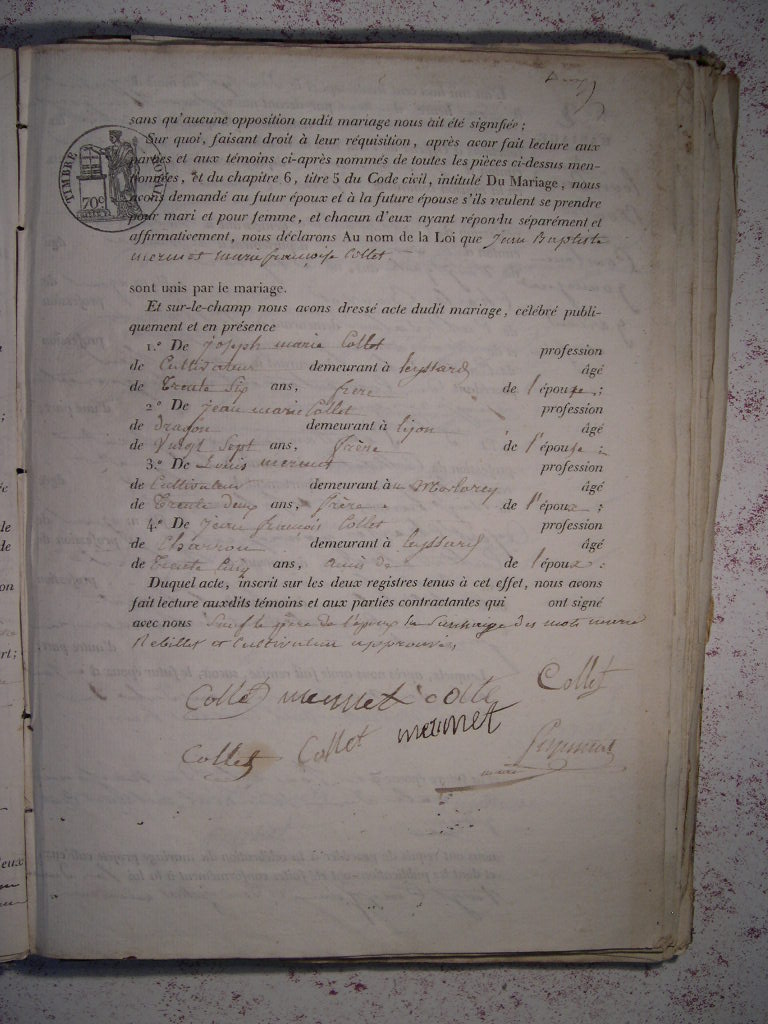 TIMBRE ROYAL
70c
sans qu'aucune opposition audit mariage nous ait été signifiée ;
Sur quoi, faisant droit à leur réquisition, après avoir fait lecture aux
parties et aux témoins ci-après nommés de toutes les pièces ci-dessus men-
tionnées, et du chapitre 6, titre 5 du Code civil, intitulé Du Mariage, nous
avons demandé au futur époux et à la future épouse s'ils veulent se prendre
pour mari et pour femme, et chacun d'eux ayant répondu séparément et
affirmativement, nous déclarons Au nom de la Loi que Jean Baptiste
mermet marie françoise Collet
sont unis par le mariage.
Et sur-le-champ nous avons dressé acte dudit mariage, célébré publi-
quement et en présence
1.º De joseph marie Collet profession
de Cultivateur demeurant à leyssard âgé
de Trente Six ans, frère de l'épouse ;
2º De jean marie Collet profession
de dragon demeurant à lijon âgé
de Vingt Sept ans, frère de l'épouse ;
3.º De Louis mermet profession
de Cultivateur demeurant à âgé
de Trente deux ans, frère de l'époux ;
4.º De jean françois Collet profession
de Charron demeurant à leyssard âgé
de Trente Cinq ans, amis de de l'époux :
Duquel acte, inscrit sur les deux registres tenus à cet effet, nous avons
fait lecture auxdits témoins et aux parties contractantes qui ont signé
avec nous Sauf le père de l'époux la Surcharge des mots marie
Rebillet et Cultivateur approuvés
Collet mermet Collet
Collet Collet mermet
maire